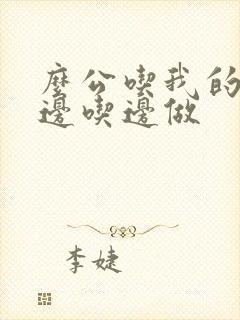 麼公喫我的
邊喫邊做
李婕